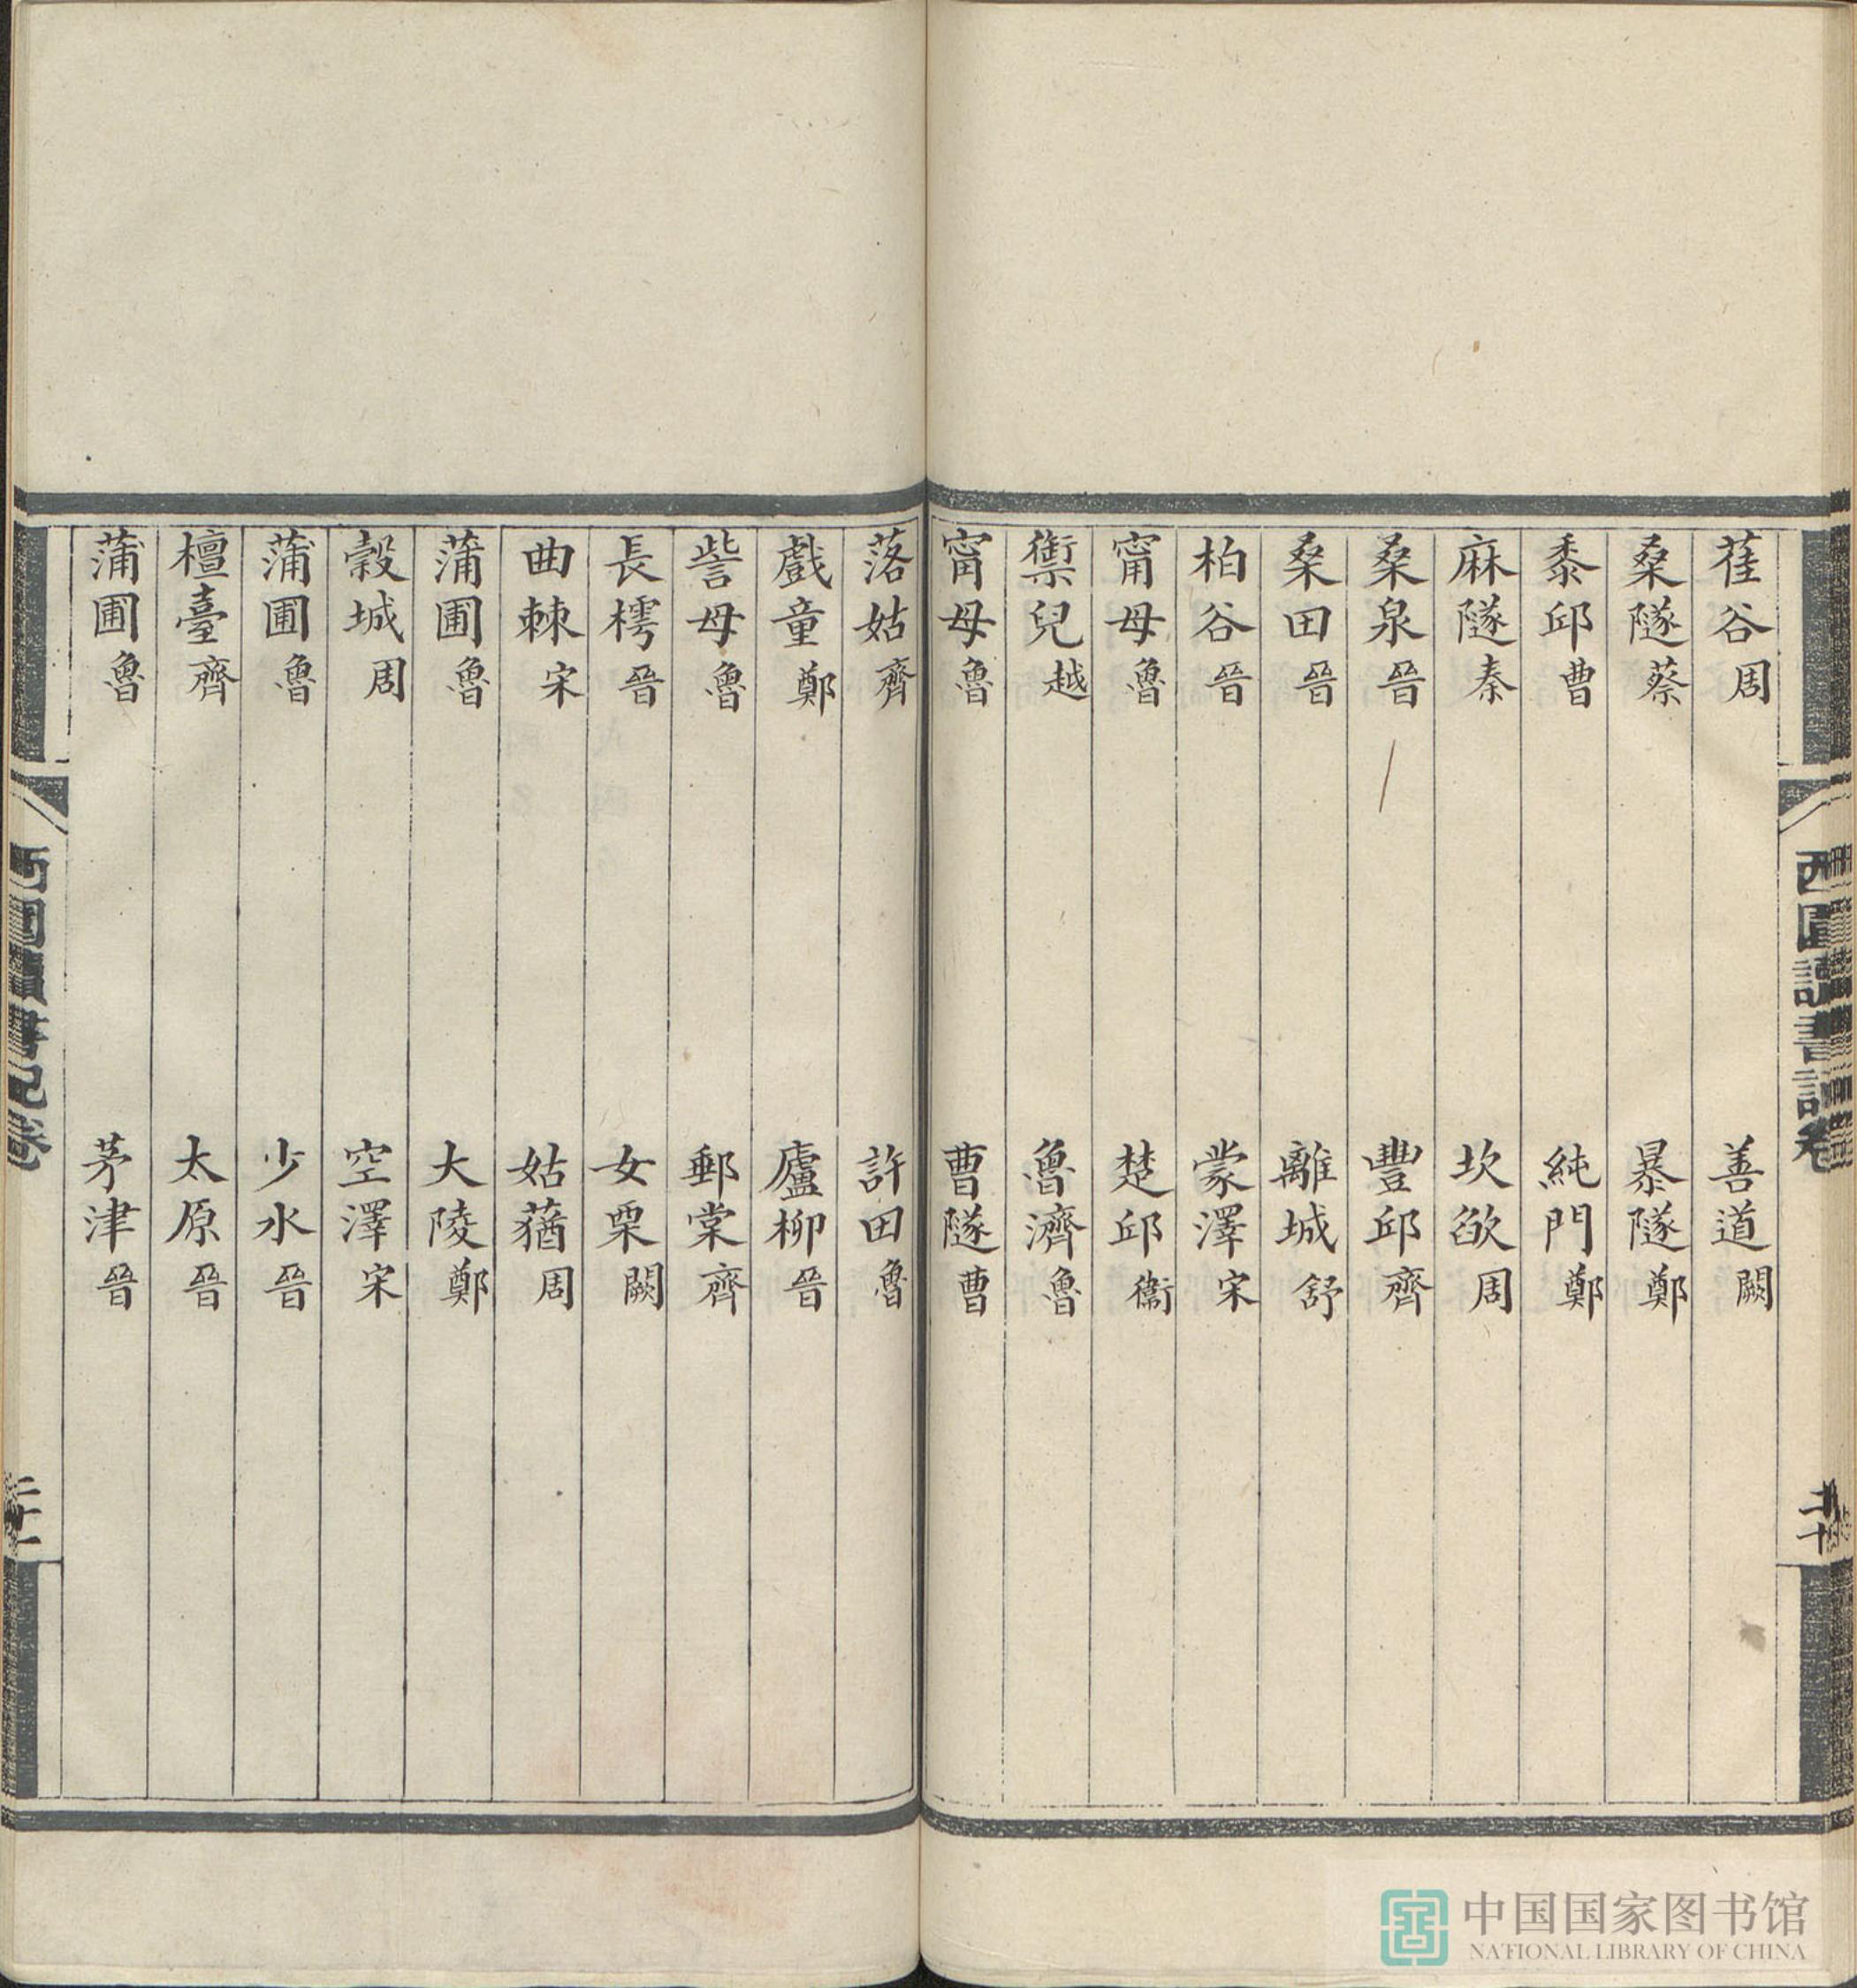 萑谷周 善道闕
桑隧蔡 暴隧鄭
黍邱曹 純門鄭
麻隧秦 坎欿周
桑泉晉 豐邱齊
桑田晉 離城舒
柏谷晉 蒙澤宋
甯母魯 楚邱衞
禦兒越 魯濟魯
甯母魯 曹隧曹
落姑齊 許田魯
戲童鄭 廬柳晉
訾母魯 郵棠齊
長樗晉 女栗闕
曲棘宋 姑蕕周
蒲圃魯 大陵鄭
榖城周 空澤宋
蒲圃魯 少水晉
檀臺齊 太原晉
蒲圃魯 茅津晉
西圃讀書記卷
二十
西圃讀書記卷
二十一
中国国家图书馆
NATIONAL LIBRARY OF CHINA